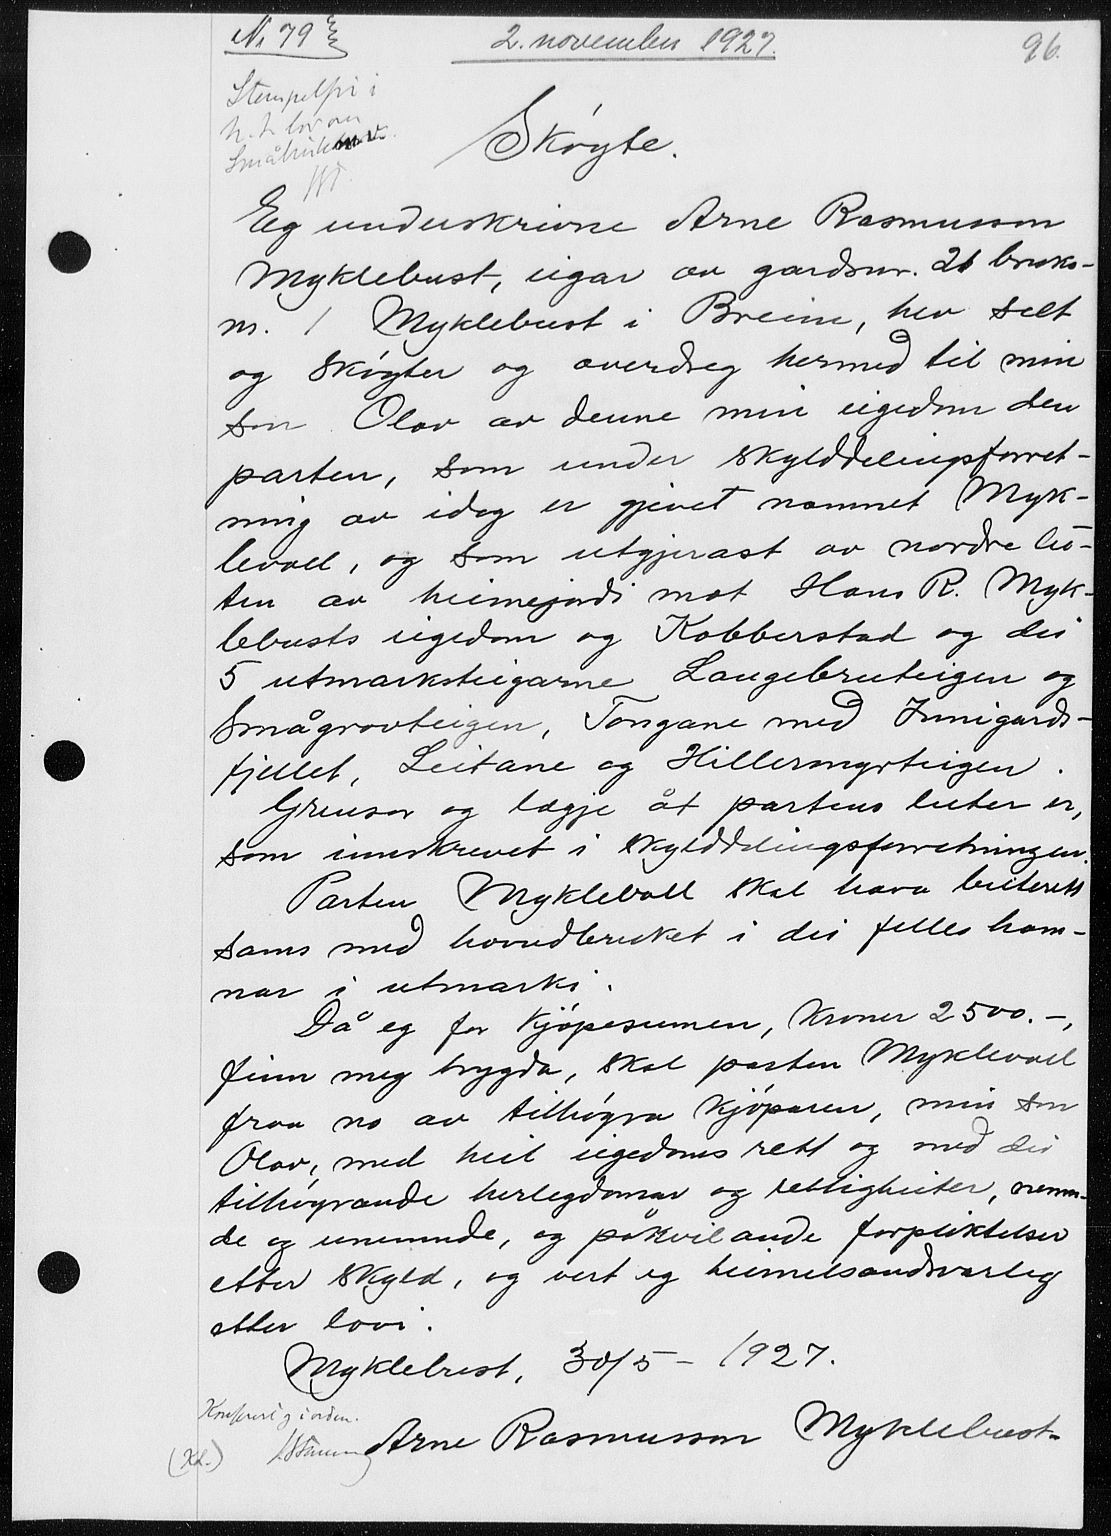 No 79
2. november 1927.
96.
Stempelfri i
h. t. lov om
Småbruk m.v.
Skøyte.
Eg underskrivne Arne Rasmusson
Myklebust, eigar av gardsnr. 21 bruks-
nr. 1 Myklebust i Breim, hev selt
og skøyter og overdreg hermed til min
son Olav av denne min eigedom den
parten, som under skylddelingsforret-
ning av idag er gjevet namnet Myk-
levoll, og som utgjerast av nordre lu-
ten av heimejordi mot Hans R. Myk-
lebusts eigedom og Kobberstad og dei
5 utmarksteigarne Langebruteigen og
Smågrovteigen, Tongane med Innigards-
fjellet, Leitane og Hillermyrteigen.
Grensor og lægje åt partens luter er,
som innskrevet i skylddelingsforretningen.
Parten Myklevoll skal hava beiterett
sams med hovudbruket i dei felles ham-
nar i utmarki.
Då eg for kjøpesumen, kroner 2500.-,
finn meg trygda, skal parten Myklevoll
fraa no av tilhøyra kjøparen, min son
Olav, med heil eigedoms rett og med dei
tilhøyrande herlegdomar og rettigheiter, nemn-
de og unemnde, og påkvilande forpliktelser
etter skyld, og vert eg heimelsandsvarleg
etter lovi.
Myklebust, 30/5 - 1927.
Konferert og i orden.
Arne Rasmusson Myklebust.